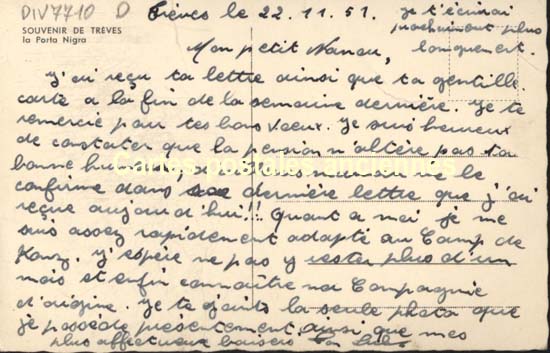 DIV7710 D
SOUVENIR DE TRÈVES
la Porta Nigra
Trèves le 22.11.51.
Je t'écrirai
prochainement plus
longuement.
Mon petit Nanou,
J'ai reçu ta lettre ainsi que ta gentille
carte a la fin de la semaine dernière. Je te
remercie pour tes bons voeux. Je suis heureux
de constater que la pension n'altère pas ta
bonne le
Cartes postales anciennes
confirme dans dernière lettre que j'ai
reçue aujourd'hui!!! Quant a moi je me
suis assez rapidement adapté au Camp de
J'espère ne pas y rester plus d'un
mois et enfin connaître ma Compagnie
d'origine. Je te joints la seule photo que
je possède présentement, ainsi que mes
plus affectueux baisers